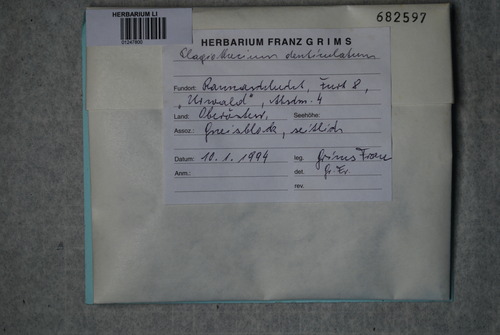 HERBARIUM LI
01247800
682597
HERBARIUM FRANZ GRIMS
Plagiothecium denticulatum
Fundort: Rannaschlucht, Furt 8,
„Urwald",
Land: Oberösterr. Seehöhe:
Assoz.: Gneisblock, seitlich
Datum: 10. 1. 1994 leg. Grims Franz
Anm.: det. Gr. Fr.
rev.